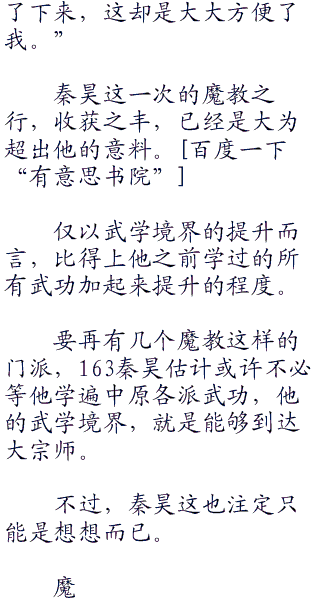 了下来，这却是大大方便了
我。”
秦昊这一次的魔教之
行，收获之丰，已经是大为
超出他的意料。[百度一下
“有意思书院”]
仅以武学境界的提升而
言，比得上他之前学过的所
有武功加起来提升的程度。
要再有几个魔教这样的
门派，163秦昊估计或许不必
等他学遍中原各派武功，他
的武学境界，就是能够到达
大宗师。
不过，秦昊这也注定只
能是想想而已。
魔